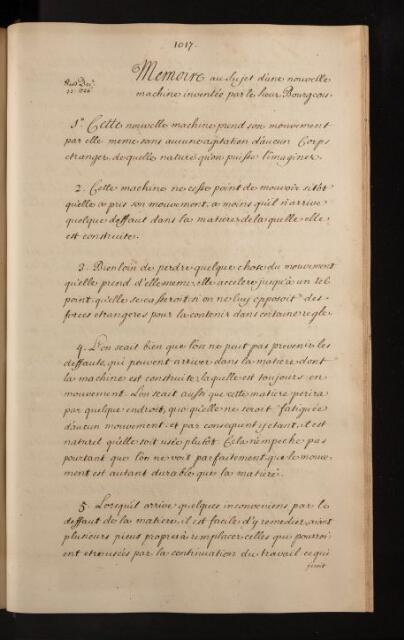 1017.
Memoire au sujet d'une nouvelle
machine inventée par le sieur Bourgeois.
1.° Cette nouvelle machine prend son mouvement
par elle meme sans aucune agitation d'aucun Corps
etranger, de quelle nature qu'on puisse l'imaginer.
2. Cette machine ne cesse point de mouvoir sitôt
qu'elle a pris son mouvement, a moins qu'il n'arrive
quelque deffaut dans la matiere de laquelle elle
est construite.
3. Bien loin de perdre quelque chose du mouvement
qu'elle prend d'elle meme, elle accelere jusqu'à un tel
point qu'elle se casseroit si on ne luy opposoit des
forces etrangeres pour la contenir dans certaine regle.
4. L'on scait bien que l'on ne peut pas prevenir les
deffauts qui peuvent arriver dans la matiere dont
la machine est construite laquelle est toujours en
mouvement. L'on scait aussi que cette matiere perira
par quelque endroit, quoiqu'elle ne seroit fatiguée
d'aucun mouvement et par consequent y etant, il est
naturel qu'elle soit usée plutôt. Cela n'empeche pas
pourtant que l'on ne voit parfaitement que le mouve-
ment est autant durable que la matiere.
5. Lorsqu'il arrive quelques inconveniens par le
deffaut de la matiere, il est facile d'y remedier, aiant
plusieurs pieces propres à remplacer celles qui pourroi-
ent etre usées par la continuation du travail ce qui